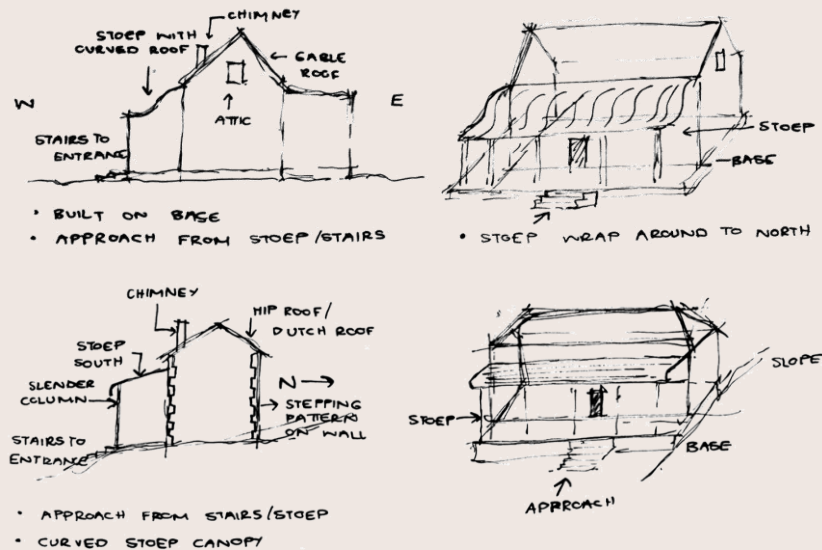 CHIMNEY
STOEP WITH
CURVED ROOF
GABLE
ROOF
W
E
ATTIC
STAIRS TO
ENTRANCE
• BUILT ON BASE
• APPROACH FROM STOEP/STAIRS
STOEP
BASE
• STOEP WRAP AROUND TO NORTH
CHIMNEY
HIP ROOF/
DUTCH ROOF
STOEP
SOUTH
SLENDER
COLUMN
N
STEPPING
PATTERN
ON WALL
STAIRS TO
ENTRANCE
• APPROACH FROM STAIRS/STOEP
• CURVED STOEP CANOPY
SLOPE
STOEP
BASE
APPROACH